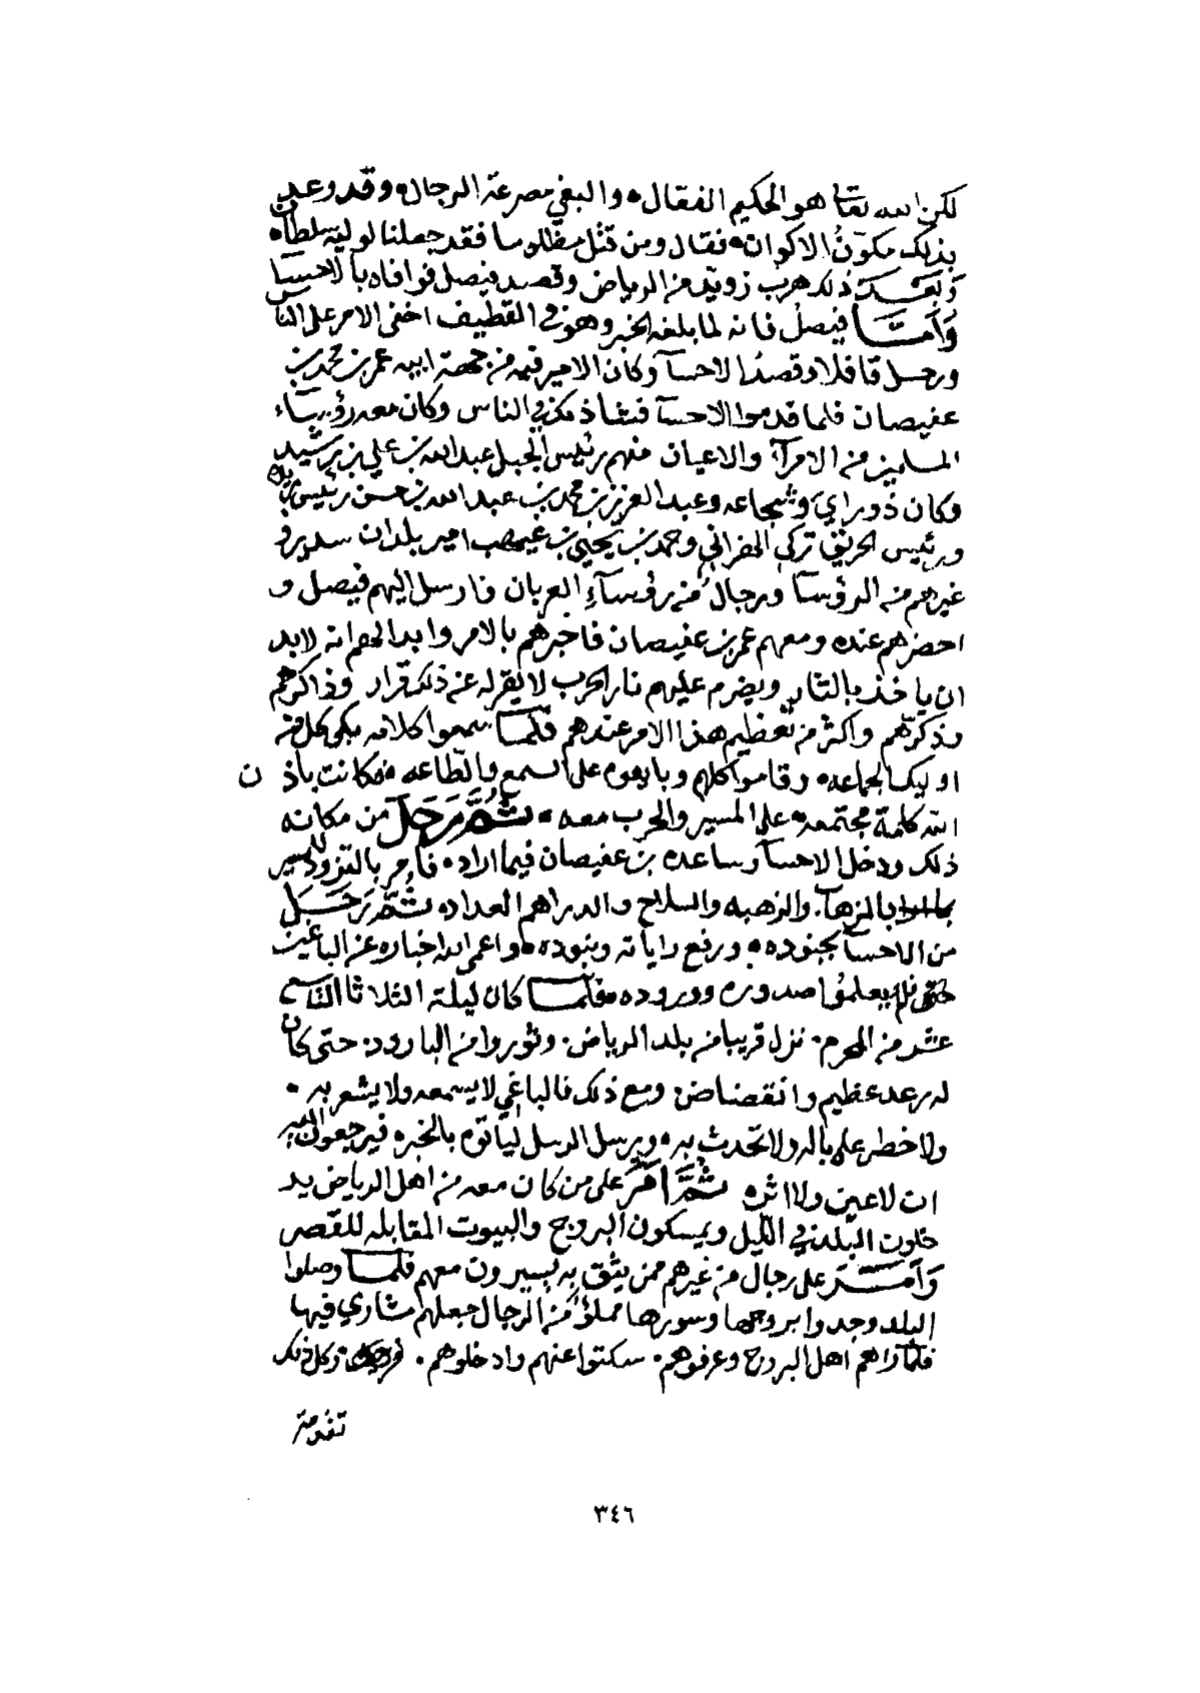 لكن الله تعا هو الحكيم الفعال ه والبغي مصرعة الرجال ه وقد وعد
بذلك مكونُ الاكوان ه فقال ومن قتل مظلوما فقد جعلنا لوليه سلطانا ه
وَبَعْد ذلك هرب زويد من الرياض وقصد فيصل فوافاه بالاحسا
وَأمَّا فيصل فانه لما بلغه الخبر وهو في القطيف اخفى الامر على الناس
ورحل قافلا وقصد الاحسآ وكان الامير فيه من جهة ابيه عمر بن محمد بن
عفيصان فلما قدموا الاحسآ فشا ذكر في الناس وكان معه رؤساء
المسلمين من الامرآء والاعيان منهم رئيس الجبل عبدالله بن علي بن رشيد
وكان ذو رايٍ وشجاعه وعبدالعزيز بن محمد بن عبدالله بن حسن رئيس بريده
ورئيس الحريق تركي الهزاني وحمد بن يحيى بن غيهب امير بلدان سدير و
غيرهم من الرؤسآ ورجالٌ من رؤسآءِ العربان فارسل اليهم فيصل و
احضرهم عنده ومعهم عمر بن عفيصان فاخبرهم بالامر وابدا لهم انه لابد
ان ياخذ بالثار ويضرم عليهم نار الحرب لا يقر له عن ذلك قرار وذاكرهم
وذكرهم واكثر من تعظيم هذا الامر عندهم فَلَمَّا سمعوا كلامه بكى كل من
اوليك الجماعه وقاموا كلهم وبايعوه على السمع والطاعه ه فكانت باذن
الله كلمة مجتمعه على المسير والحرب معه ه ثُمَّ رَحَلَ من مكانه
ذلك ودخل الاحسآ وساعده بن عفيصان فيما اراده فامر بالتزود للمسير
بالزهآب والزهبه والسلاح والدراهم العداد ه ثُمَّ رَحَلَ
من الاحسآ بجنوده ه ورفع راياته وبنوده ه واعمى الله اخباره عن الباغين
حتى لم يعلموا صدوره ووروده ه فلَمَّا كان ليلة الثلاثا الثاني
عشر من المحرم ه نزل قريبا من بلد الرياض ه وثوروا من البارود ه حتى كان
له رعد عظيم وانقضاض ه ومع ذلك فالباغي لا يسمعه ولا يشعر به ه
ولا خطر على باله ولا تحدث به ه ويرسل الرسل لياتوه بالخبره فيرجعون اليه
ان لا عين ولا اثر ه ثُمَّ اَمَرَ على من كان معه من اهل الرياض يد
خلون البلد في الليل ويمسكون البروج والبيوت المقابله للقصر
وَأمَرَ على رجال من غيرهم ممن يثق به يسيرون معهم فلَمَّا وصلوا
البلد وجدوا بروجها وسورها مملؤ من الرجال جعلهم مشاري فيها
فلما راهم اهل البروج وعرفوهم ه سكتوا عنهم وادخلوهم ه وكل ذلك
٣٤٦